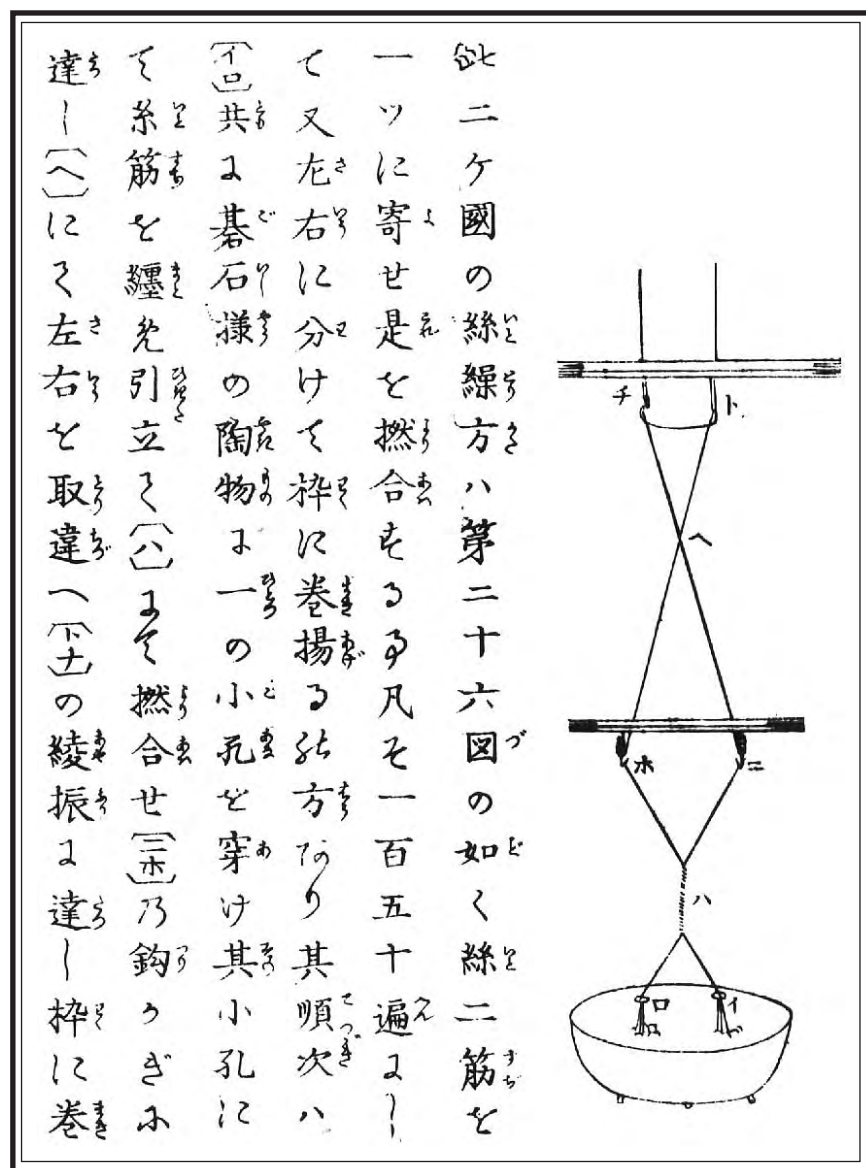 此二ケ國の絲繰方ハ第二十六図の如く絲二筋を
一ツに寄せ是を撚合する事凡そ一百五十遍にし
て又左右に分けて枠に巻揚るの方なり其順次ハ
〔イロ〕共に碁石様の陶物に一の小孔を穿け其小孔に
て糸筋を纏め引立て〔ハ〕にて撚合せ〔ニホ〕乃鈎かぎに
達し〔ヘ〕にて左右を取違へ〔トチ〕の綾振に達し枠に巻
チ ト
ヘ
ホ ニ
ハ
ロ イ